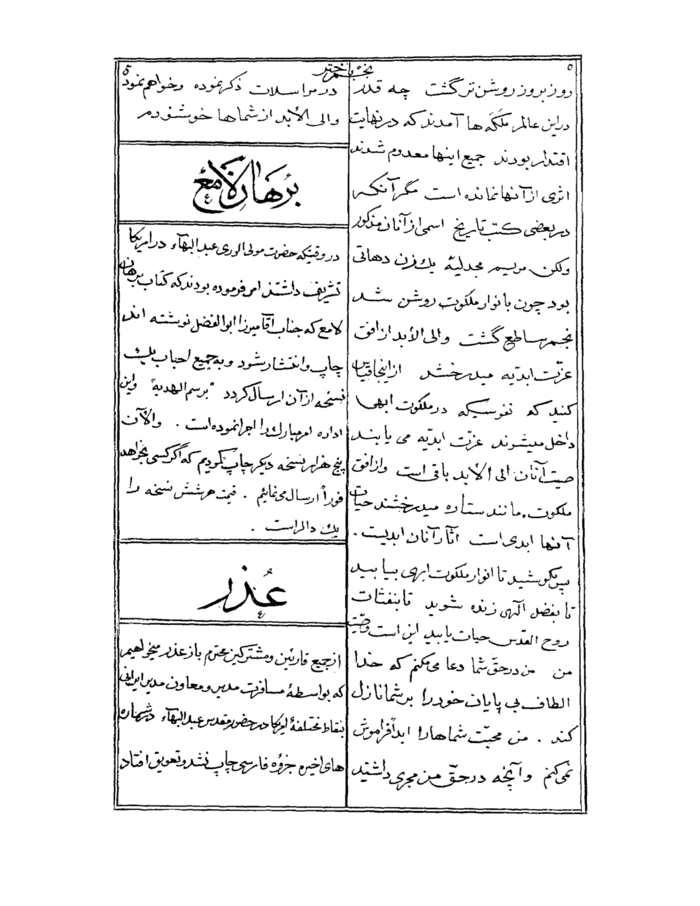 ۵
نجم باختر
۵
روز بروز روشن تر گشت چه قدر
در این عالم ملکه ها آمدند که در نهایت
اقتدار بودند جمیع اینها معدوم شدند
اثری از آنها نمانده است مگر آنکه
در بعضی کتب تاریخ اسمی از آنان مذکور
ولکن مریم مجدلیّه یک زن دهاتی
بود چون بانوار ملکوت روشن شد
نجم ساطع گشت والی الأبد از افق
عزّت ابدیّه میدرخشد از اینجا قیاس
کنید که نفوسیکه در ملکوت ابهی
داخل میشوند عزت ابدیّه می یابند
صیت آنان الی الابد باقی است و از افق
ملکوت مانند ستاره میدرخشند حیات
آنها ابدی است آثار آنان ابدیست .
پس بکوشید تا انوار ملکوت ابهی بیابید
تا بفضل الهی زنده شوید تا بنفثات
روح القدس حیات یابید این است وصیّت
من من در حقّ شما دعا میکنم که خدا
الطاف بی پایان خود را بر شما نازل
کند . من محبّت شماها را ابداً فراموش
نمی کنم و آنچه در حقّ من مجری داشتید
در مراسلات ذکر نموده و خواهم نمود
والی الأبد از شماها خوشنودم
برهان لامع
در وقتیکه حضرت مولی الوری عبدالبهآء در امریکا
تشریف داشتند امر فرموده بودند که کتاب برهان
لامع که جناب آقا میرزا ابوالفضل نوشته اند
چاپ و انتشار شود و به جمیع احباب یک
نسخه از آن ارسال گردد "برسم الهدیة" و این
اداره امر مبارک را اجرا نموده است . والآن
پنج هزار نسخه دیگر چاپ نمودیم که اگر کسی بخواهد
فوراً ارسال می نمائیم . قیمت هر شش نسخه را
یک دالر است .
عُذر
از جمیع قارئین و مشترکین محترم باز عذر میخواهیم
که بواسطهٔ مسافرت مدیر و معاون مدیر ایرانی
بنقاط مختلفهٔ امریکا در حضور مقدس عبدالبهآء در شماره
های اخیره جزوه فارسی چاپ نشد و تعویق افتاد